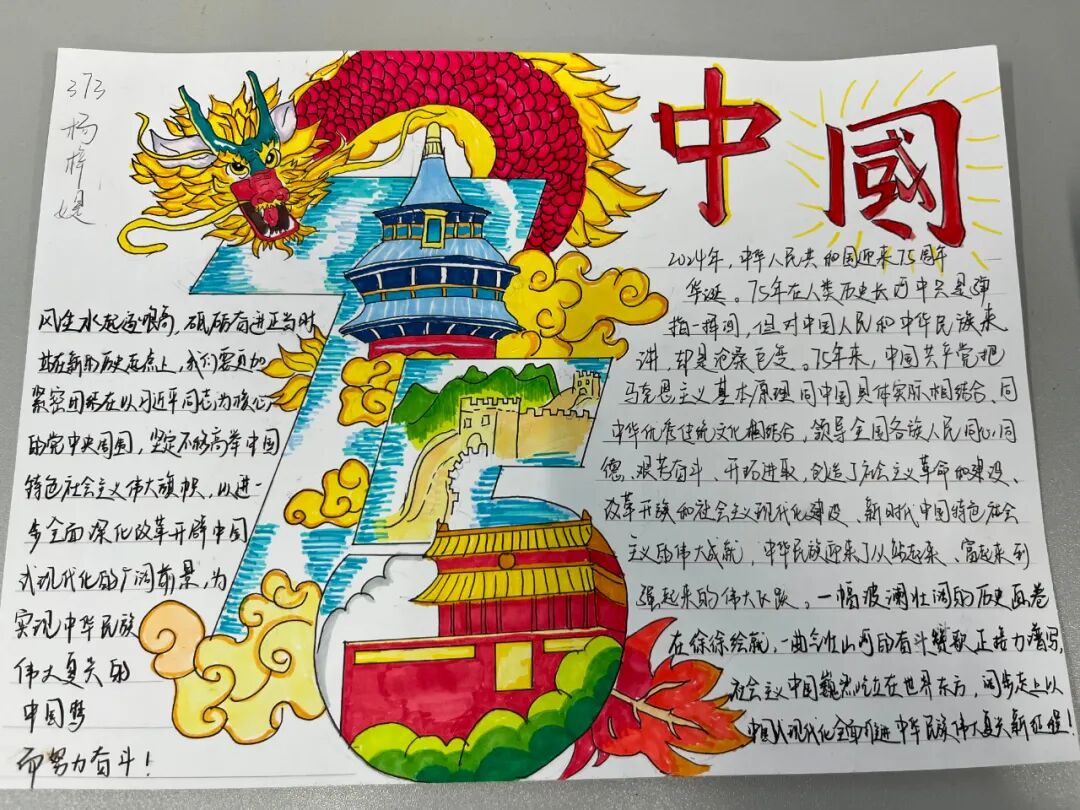 373
杨梓媞
中國
风生水起逐浪高，砥砺奋进正当时
站在新的历史起点上，我们要更加
紧密团结在以习近平同志为核心
的党中央周围，坚定不移高举中国
特色社会主义伟大旗帜，以进一
步全面深化改革开辟中国
式现代化的广阔前景，为
实现中华民族
伟大复兴的
中国梦
而努力奋斗！
2024年，中华人民共和国迎来75周年
华诞。75年在人类历史长河中只是弹
指一挥间，但对中国人民和中华民族来
讲，却是沧桑巨变。75年来，中国共产党把
马克思主义基本原理同中国具体实际相结合、同
中华优秀传统文化相结合，领导全国各族人民同心同
德、艰苦奋斗、开拓进取，创造了社会主义革命和建设、
改革开放和社会主义现代化建设、新时代中国特色社会
主义的伟大成就，中华民族迎来了从站起来、富起来到
强起来的伟大飞跃。一幅波澜壮阔的历史画卷
在徐徐绘就，一曲气壮山河的奋斗赞歌正接力谱写，
社会主义中国巍然屹立在世界东方，阔步走上以
中国式现代化全面推进中华民族伟大复兴新征程！